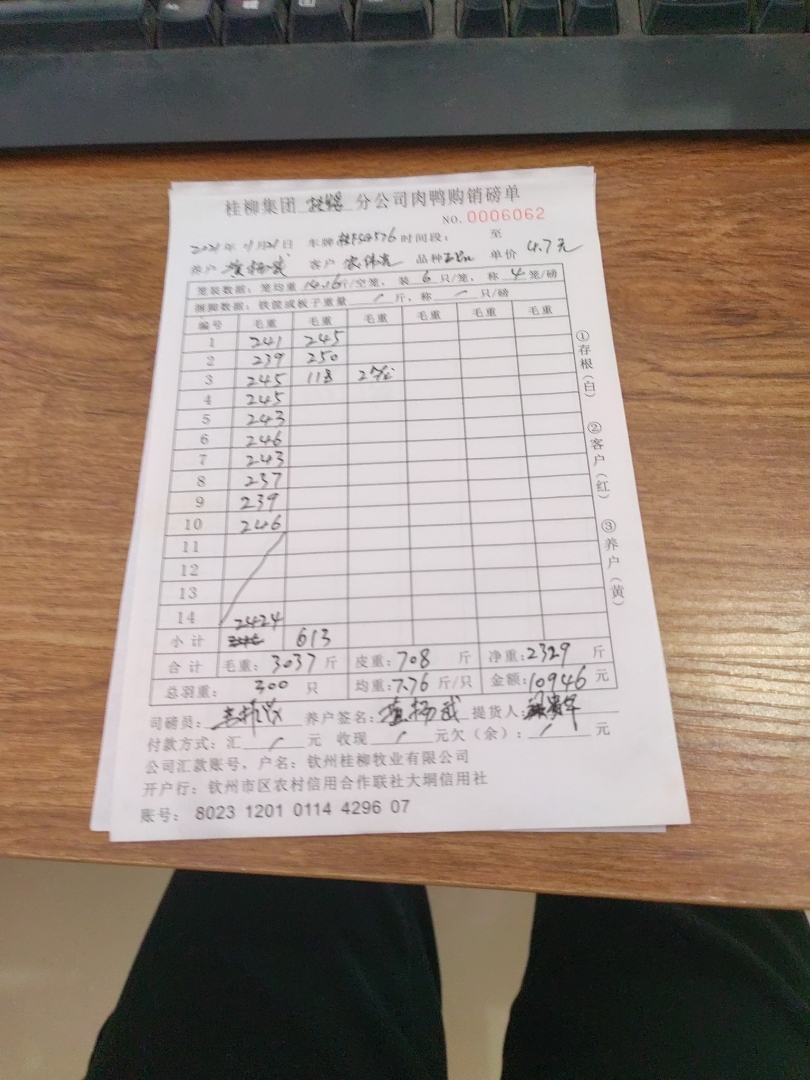 桂柳集团 分公司肉鸭购销磅单
NO. 0006062
2021年11月21日 车牌 时间段： 至
养户 黄杨武 客户 农伟 品种 单价 4.7元
笼装数据：笼均重 14.16斤/空笼，装 6 只/笼，称 4 笼/磅
捆脚数据：铁筐或板子重量 / 斤，称 / 只/磅
编号 毛重 毛重 毛重 毛重 毛重 毛重
1 241 245
2 239 250
3 245 118
4 245
5 243
6 246
7 243
8 237
9 239
10 246
11
12
13
14
小计 2424 613
合计 毛重：3037 斤 皮重：708 斤 净重：2329 斤
总羽重： 300 只 均重：7.76 斤/只 金额：10946 元
司磅员： 养户签名：黄杨武 提货人：
付款方式：汇 / 元 收现 / 元欠（余）： / 元
公司汇款账号，户名：钦州桂柳牧业有限公司
开户行：钦州市区农村信用合作联社大垌信用社
账号： 8023 1201 0114 4296 07
①存根（白）
②客户（红）
③养户（黄）